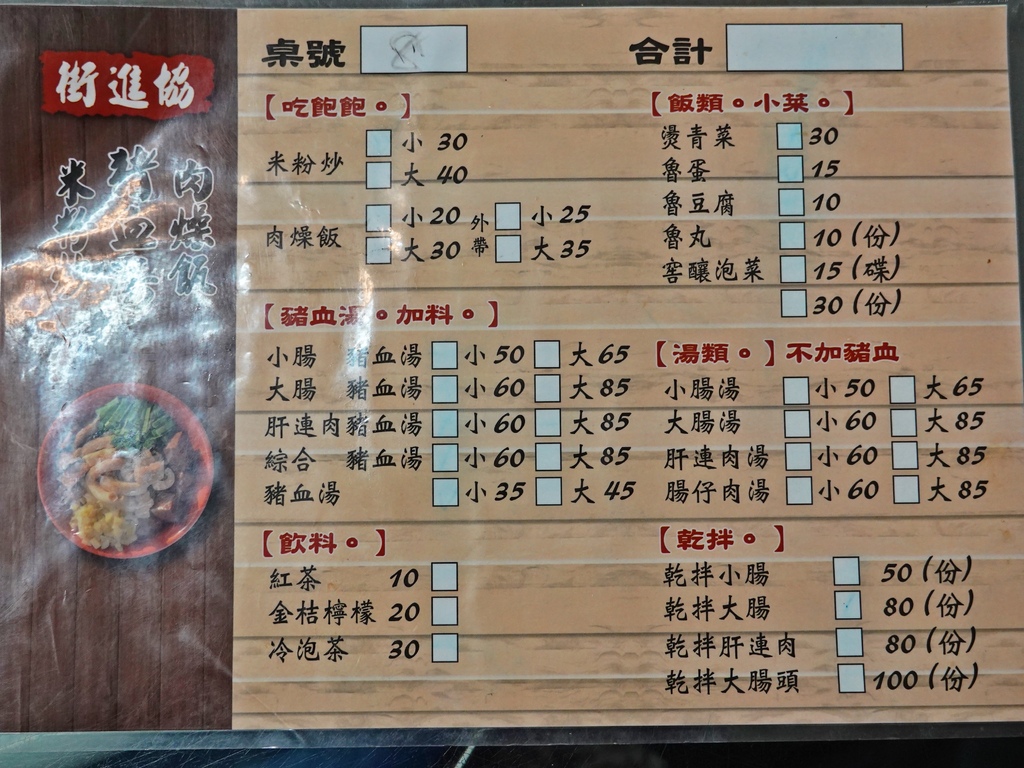 協進街
肉燥飯
豬血湯
米粉炒
桌號
合計
【吃飽飽。】
米粉炒 小 30
大 40
肉燥飯 小 20 外帶 小 25
大 30 大 35
【豬血湯。加料。】
小腸 豬血湯 小 50 大 65
大腸 豬血湯 小 60 大 85
肝連肉豬血湯 小 60 大 85
綜合 豬血湯 小 60 大 85
豬血湯 小 35 大 45
【飲料。】
紅茶 10
金桔檸檬 20
冷泡茶 30
【飯類。小菜。】
燙青菜 30
魯蛋 15
魯豆腐 10
魯丸 10 (份)
窖釀泡菜 15 (碟)
30 (份)
【湯類。】不加豬血
小腸湯 小 50 大 65
大腸湯 小 60 大 85
肝連肉湯 小 60 大 85
腸仔肉湯 小 60 大 85
【乾拌。】
乾拌小腸 50 (份)
乾拌大腸 80 (份)
乾拌肝連肉 80 (份)
乾拌大腸頭 100 (份)